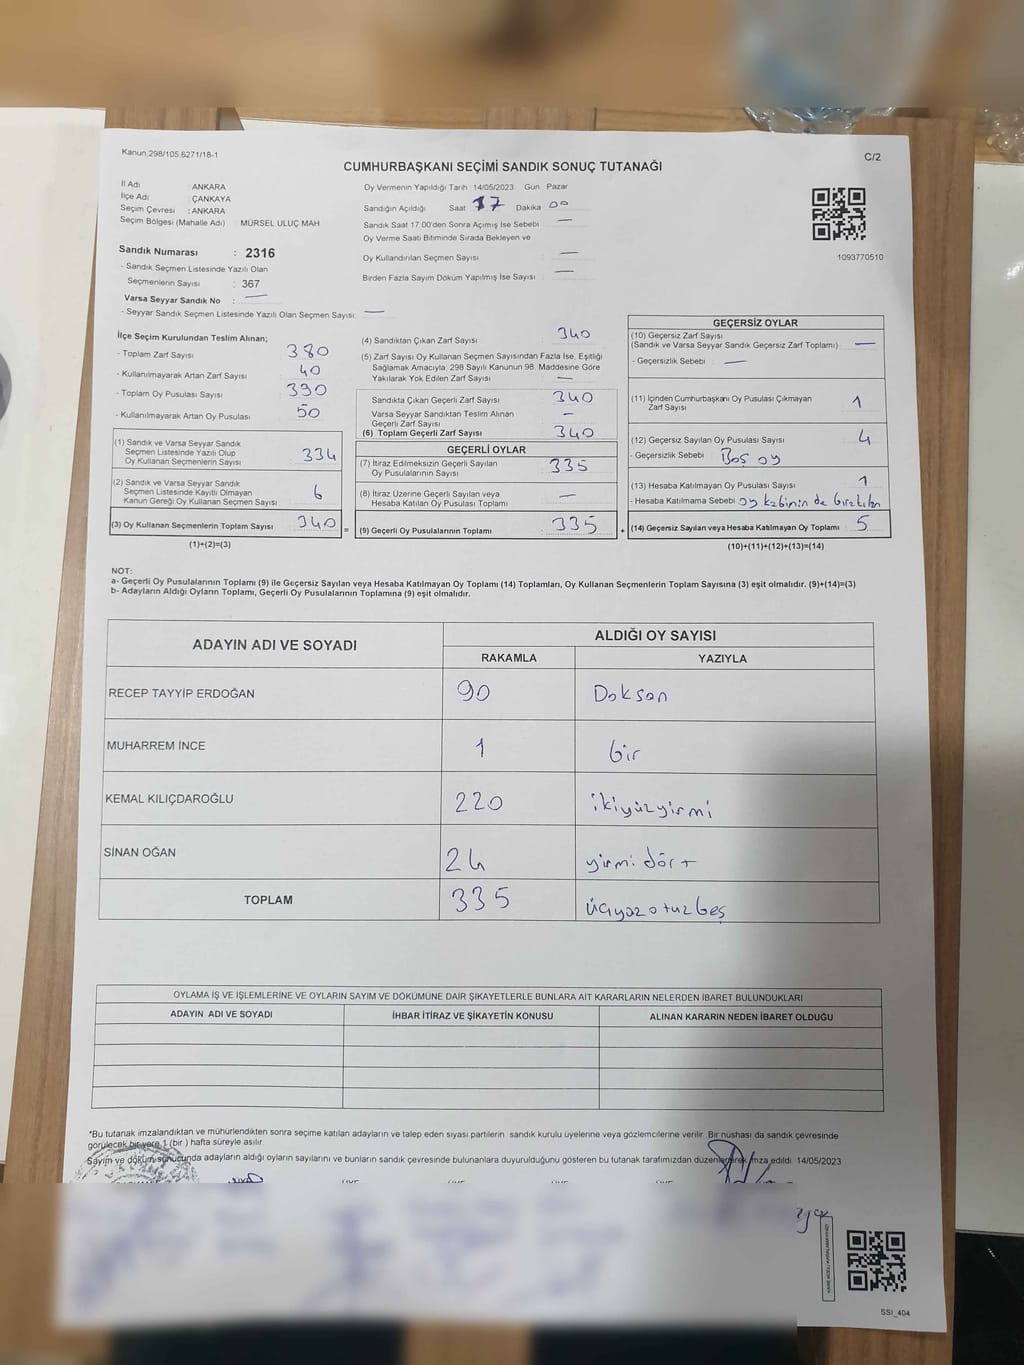 Kanun:298/105 6271/18-1
C/2
CUMHURBAŞKANI SEÇİMİ SANDIK SONUÇ TUTANAĞI
İl Adı : ANKARA
İlçe Adı : ÇANKAYA
Seçim Çevresi : ANKARA
Seçim Bölgesi (Mahalle Adı) MÜRSEL ULUÇ MAH
Sandık Numarası : 2316
- Sandık Seçmen Listesinde Yazılı Olan
Seçmenlerin Sayısı : 367
Varsa Seyyar Sandık No : —
- Seyyar Sandık Seçmen Listesinde Yazılı Olan Seçmen Sayısı: —
Oy Vermenin Yapıldığı Tarih 14/05/2023 Gün Pazar
Sandığın Açıldığı Saat 17 Dakika 00
Sandık Saat 17.00'den Sonra Açımış İse Sebebi : —
Oy Verme Saati Bitiminde Sırada Bekleyen ve
Oy Kullandırılan Seçmen Sayısı : —
Birden Fazla Sayım Döküm Yapılmış İse Sayısı : —
1093770510
İlçe Seçim Kurulundan Teslim Alınan;
- Toplam Zarf Sayısı : 380
- Kullanılmayarak Artan Zarf Sayısı : 40
- Toplam Oy Pusulası Sayısı : 390
- Kullanılmayarak Artan Oy Pusulası : 50
(1) Sandık ve Varsa Seyyar Sandık
Seçmen Listesinde Yazılı Olup
Oy Kullanan Seçmenlerin Sayısı : 334
(2) Sandık ve Varsa Seyyar Sandık
Seçmen Listesinde Kayıtlı Olmayan
Kanun Gereği Oy Kullanan Seçmen Sayısı : 6
(3) Oy Kullanan Seçmenlerin Toplam Sayısı : 340
(1)+(2)=(3)
(4) Sandıktan Çıkan Zarf Sayısı : 340
(5) Zarf Sayısı Oy Kullanan Seçmen Sayısından Fazla İse, Eşitliği
Sağlamak Amacıyla; 298 Sayılı Kanunun 98. Maddesine Göre
Yakılarak Yok Edilen Zarf Sayısı : —
Sandıkta Çıkan Geçerli Zarf Sayısı : 340
Varsa Seyyar Sandıktan Teslim Alınan
Geçerli Zarf Sayısı : —
(6) Toplam Geçerli Zarf Sayısı : 340
GEÇERLİ OYLAR
(7) İtiraz Edilmeksizin Geçerli Sayılan
Oy Pusulalarının Sayısı : 335
(8) İtiraz Üzerine Geçerli Sayılan veya
Hesaba Katılan Oy Pusulası Toplamı : —
= (9) Geçerli Oy Pusulalarının Toplamı : 335 +
GEÇERSİZ OYLAR
(10) Geçersiz Zarf Sayısı
(Sandık ve Varsa Seyyar Sandık Geçersiz Zarf Toplamı) : —
- Geçersizlik Sebebi : —
(11) İçinden Cumhurbaşkanı Oy Pusulası Çıkmayan
Zarf Sayısı : 1
(12) Geçersiz Sayılan Oy Pusulası Sayısı : 4
- Geçersizlik Sebebi : Boş oy
(13) Hesaba Katılmayan Oy Pusulası Sayısı : 1
- Hesaba Katılmama Sebebi : oy kabinin de bırakılan
(14) Geçersiz Sayılan veya Hesaba Katılmayan Oy Toplamı : 5
(10)+(11)+(12)+(13)=(14)
NOT:
a- Geçerli Oy Pusulalarının Toplamı (9) ile Geçersiz Sayılan veya Hesaba Katılmayan Oy Toplamı (14) Toplamları, Oy Kullanan Seçmenlerin Toplam Sayısına (3) eşit olmalıdır. (9)+(14)=(3)
b- Adayların Aldığı Oyların Toplamı, Geçerli Oy Pusulalarının Toplamına (9) eşit olmalıdır.
ADAYIN ADI VE SOYADI
ALDIĞI OY SAYISI
RAKAMLA YAZIYLA
RECEP TAYYİP ERDOĞAN 90 Doksan
MUHARREM İNCE 1 bir
KEMAL KILIÇDAROĞLU 220 ikiyüzyirmi
SİNAN OĞAN 24 yirmi dört
TOPLAM 335 üçyüzotuzbeş
OYLAMA İŞ VE İŞLEMLERİNE VE OYLARIN SAYIM VE DÖKÜMÜNE DAİR ŞİKAYETLERLE BUNLARA AİT KARARLARIN NELERDEN İBARET BULUNDUKLARI
ADAYIN ADI VE SOYADI İHBAR İTİRAZ VE ŞİKAYETİN KONUSU ALINAN KARARIN NEDEN İBARET OLDUĞU
*Bu tutanak imzalandıktan ve mühürlendikten sonra seçime katılan adayların ve talep eden siyasi partilerin sandık kurulu üyelerine veya gözlemcilerine verilir. Bir nüshası da sandık çevresinde
görülecek bir yere 1 (bir ) hafta süreyle asılır.
Sayım ve döküm sonucunda adayların aldığı oyların sayılarını ve bunların sandık çevresinde bulunanlara duyurulduğunu gösteren bu tutanak tarafımızdan düzenlenerek imza edildi. 14/05/2023
SSI_404